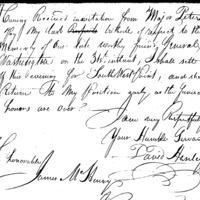 Having Received invitation from Major Peters
to pay my last tribute of respect to the
Memory of our late worthy friend, General
Washington on the 3rd instant, I shall set
off this evening for South West Point, and shall
Return to My position early as the Funeral
honors are over.
I am very Respectfully
Your Humble Servant
David Henley
Honorable
James McHenry